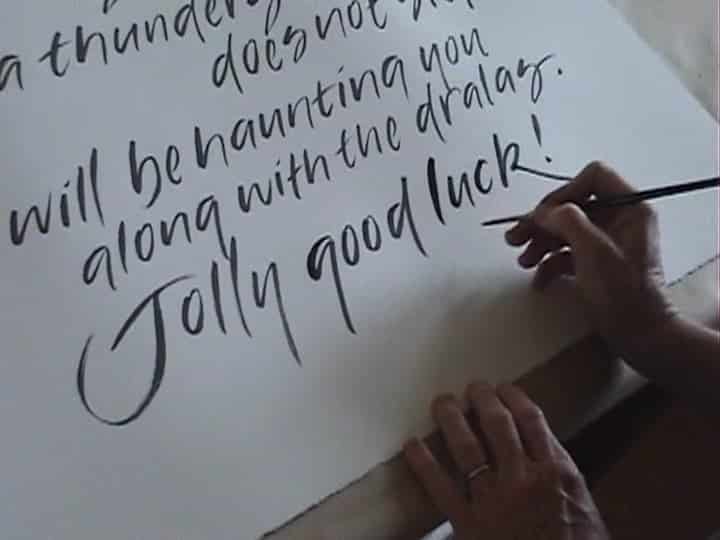 a
does not
will be haunting you
along with the dralas.
Jolly good luck!